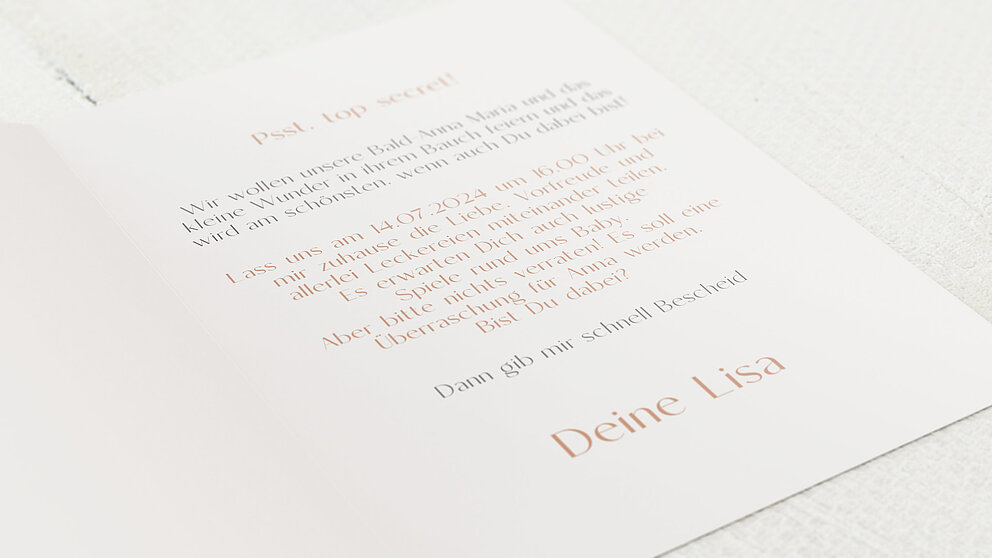 Psst, top secret!
Wir wollen unsere Bald-Anna Maria und das
kleine Wunder in ihrem Bauch feiern und das
wird am schönsten, wenn auch Du dabei bist!
Lass uns am 14.07.2024 um 16.00 Uhr bei
mir zuhause die Liebe, Vorfreude und
allerlei Leckereien miteinander teilen.
Es erwarten Dich auch lustige
Spiele rund ums Baby.
Aber bitte nichts verraten! Es soll eine
Überraschung für Anna werden.
Bist Du dabei?
Dann gib mir schnell Bescheid
Deine Lisa